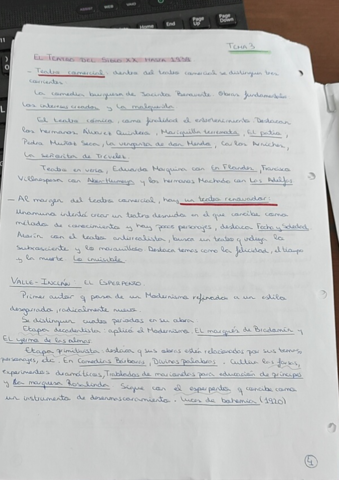 TEMA 3
EL TEATRO DEL SIGLO XX HASTA 1939
- Teatro comercial: dentro del teatro comercial se distinguen tres
corrientes
La comedia burguesa de Jacinto Benavente. Obras fundamentales
Los intereses creados y La malquerida
El teatro cómico como finalidad el entretenimiento. Destacan
los hermanos Álvarez Quintero, Mariquilla Terremoto, El patio,
Pedro Muñoz Seca, La venganza de don Mendo, Carlos Arniches,
La señorita de Trévelez
Teatro en verso, Eduardo Marquina con La Francisco
Villaespesa con Aben-Humeya y los hermanos Machado con Los Adelfos
- Al margen del teatro comercial, hay un teatro renovador:
Unamuno intentó crear un teatro desnudo en el que concibe como
método de conocimiento y hay pocos personajes, destaca Fedra y Soledad.
Azorín con el teatro antirrealista, busca un teatro y refleja lo
subconsciente y lo maravilloso. Destaca temas como la felicidad, el tiempo
y la muerte. Lo invisible
VALLE-INCLÁN: EL ESPERPENTO
Primer autor y pasa de un Modernismo refinado a un estilo
desgarrado, radicalmente nuevo
Se distinguen cuatro periodos en su obra
Etapa decadentista aplicó el Modernismo. El marqués de Bradomín y
El yermo de las almas
Etapa primitivista: destacan sus obras están relacionadas por sus temas,
personajes, etc. En Comedias Bárbaras, Divinas palabras. Cultiva las farsas,
experimentos dramáticos, Tablado de marionetas para educación de príncipes
y La marquesa Rosalinda. Sigue con el esperpento y concibe como
un instrumento de desenmascaramiento. Luces de bohemia (1920)
4